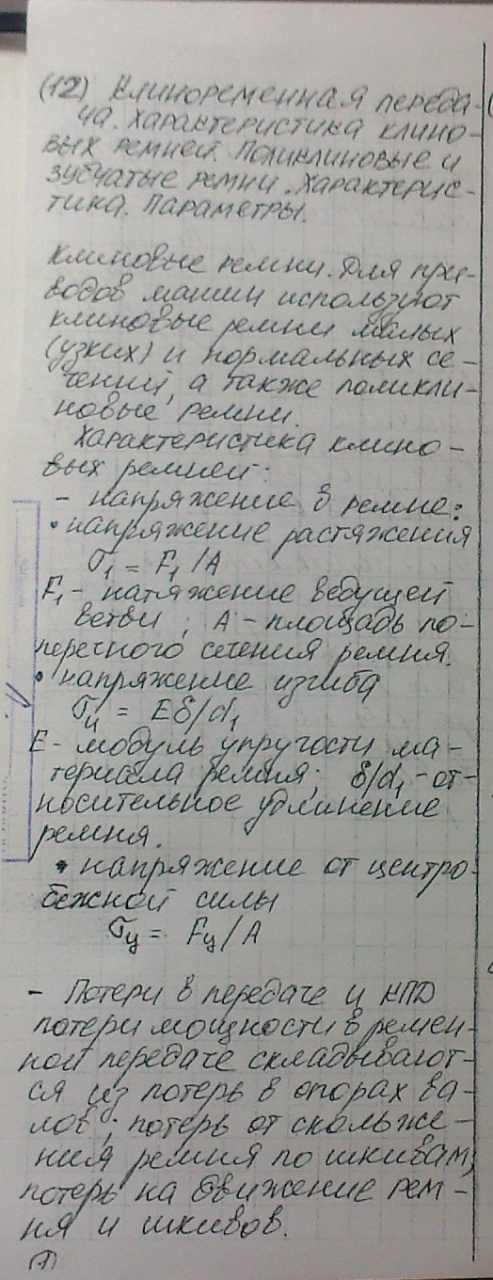 (12) Клиноременная переда-
ча. Характеристика клино-
вых ремней. Поликлиновые и
зубчатые ремни. Характерис-
тика. Параметры.
Клиновые ремни. Для при-
водов машин используют
клиновые ремни малых
(узких) и нормальных се-
чений, а также поликли-
новые ремни.
Характеристика клино-
вых ремней:
- напряжение в ремне:
• напряжение растяжения
σ₁ = F₁/A
F₁ - натяжение ведущей
ветви; A - площадь по-
перечного сечения ремня.
• напряжение изгиба
σи = Eδ/d₁
E - модуль упругости ма-
териала ремня; δ/d₁ - от-
носительное удлинение
ремня.
• напряжение от центро-
бежной силы
σц = Fц/A
- Потери в передаче и КПД
потери мощности в ремен-
ной передаче складывают-
ся из потерь в опорах ва-
лов; потерь от скольже-
ния ремня по шкивам,
потерь на движение рем-
ня и шкивов.